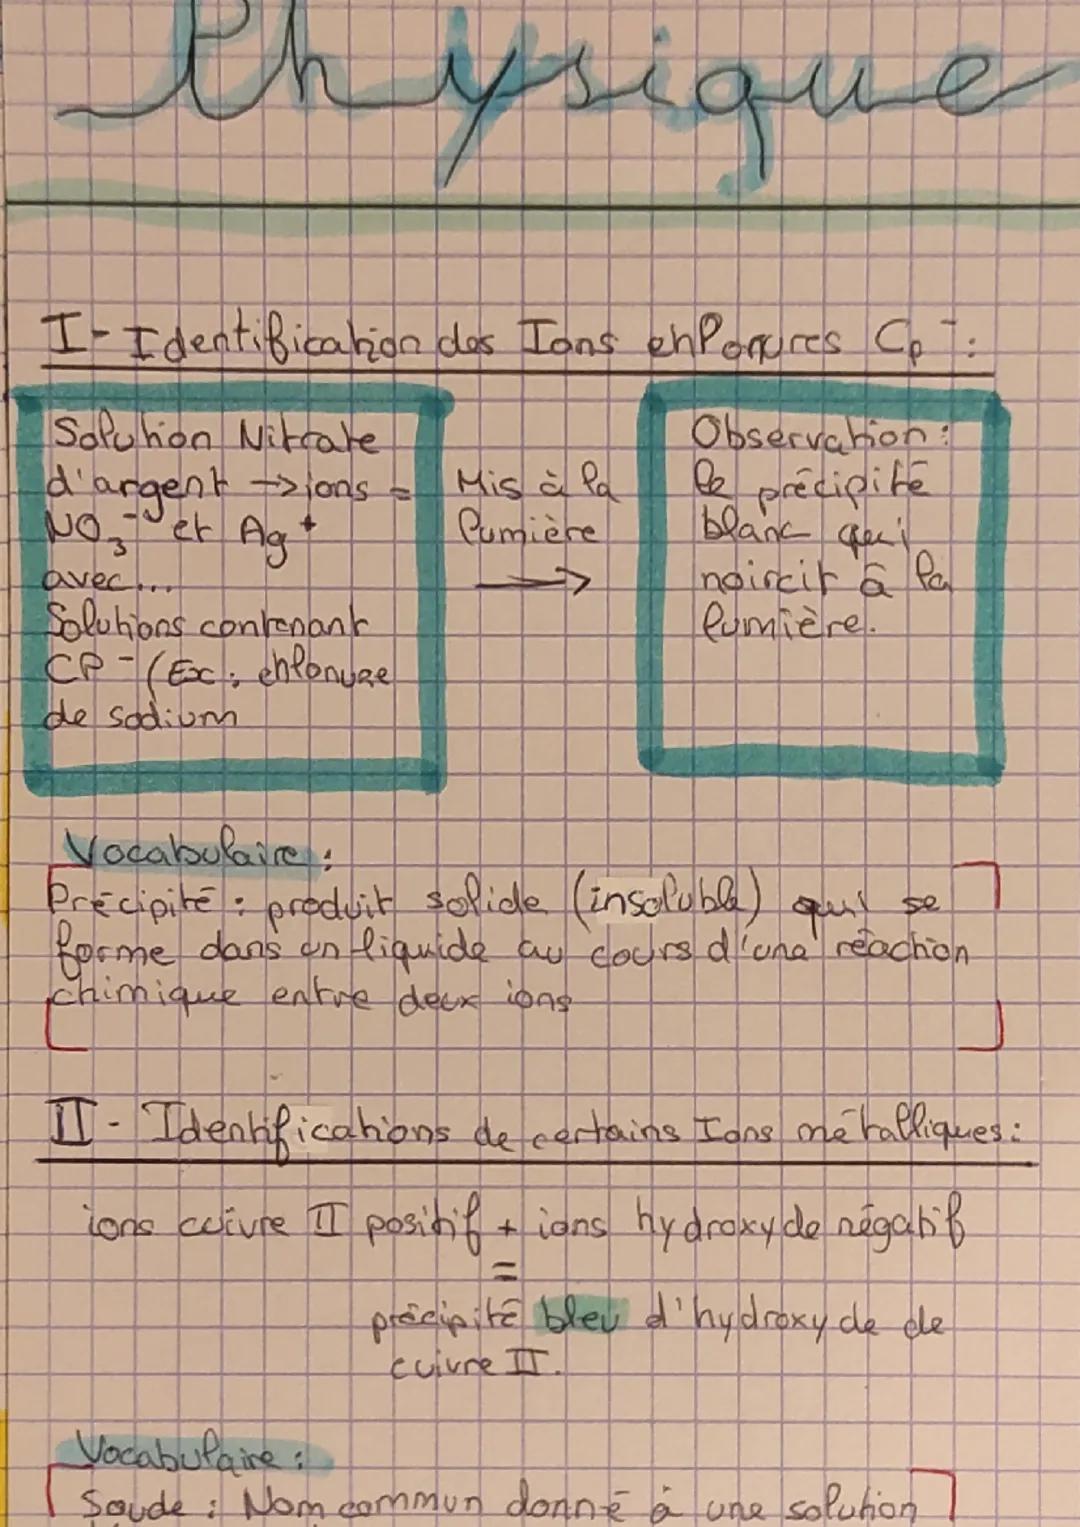 Physique
I - Identification des Ions chlorures Cl⁻ :
Solution Nitrate
d'argent → ions =
NO₃⁻ et Ag⁺
avec...
Solutions contenant
Cl⁻ (Ex : chlorure
de sodium
Mis à la
lumière
→
Observation :
le précipité
blanc qui
noircit à la
lumière.
Vocabulaire :
Précipité : produit solide (insoluble) qui se
forme dans un liquide au cours d'une réaction
chimique entre deux ions
II - Identifications de certains Ions métalliques :
ions cuivre II positif + ions hydroxyde négatif
=
précipité bleu d'hydroxyde de
cuivre II.
Vocabulaire :
Soude : Nom commun donné à une solution